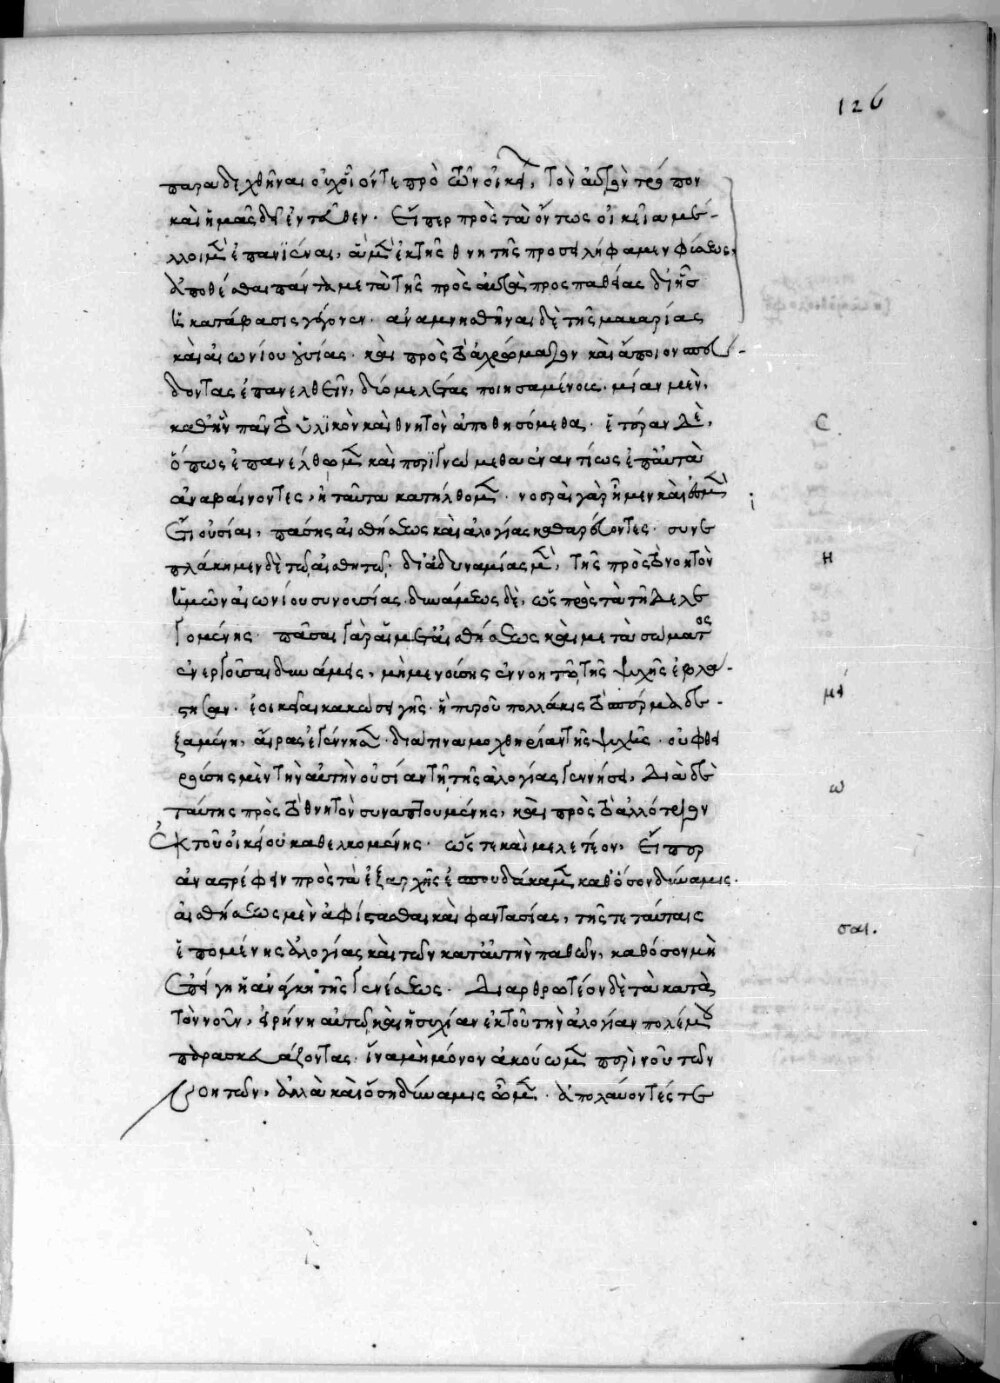 παραδεχθῆναι οὐχ οἷόντε πρὸ τῶν οἰκεί, τὸν αὐτὸν τρόπον
καὶ ἡμᾶς δεῖ ἐντεῦθεν. Εἴπερ πρὸς τὰ ὄντως οἰκεῖα μέ-
λλοιμεν ἐπανϊέναι, ἃ μὲν ἐκ τῆς θνητῆς προσειλήφαμεν φύσεως,
ἀποθέσθαι πάντα μετὰ τῆς πρὸς αὐτὰ προσπαθείας δι' ἧς
ἡ κατάβασις γέγονεν. ἀναμνησθῆναι δὲ τῆς μακαρίας
καὶ αἰωνίου οὐσίας. καὶ πρὸς τὸ ἀχρώματον καὶ ἄποιον σπεύ-
δοντας ἐπανελθεῖν, δύο μελέτας ποιησαμένοις. μίαν μὲν,
καθ' ἣν πᾶν τὸ ὑλϊκὸν καὶ θνητὸν ἀποθησόμεθα. ἑτέραν δὲ,
ὅπως ἐπανέλθωμεν καὶ περϊγενώμεθα ἐναντίως ἐπ' αὐτὰ
ἀναβαίνοντες, ἢ ταῦτα κατήλθομεν. νοεραὶ γὰρ ἦμεν καὶ ἐσμὲν
ἔτι οὐσίαι, πάσης αἰσθήσεως καὶ ἀλογίας καθαρεύοντες. συνε
πλάκημεν δὲ τοῖς αἰσθητοῖς. δι' ἀδυναμίας μὲν, τῆς πρὸς τὸ νοητὸν
ἡμῶν αἰωνίου συνουσίας. δυνάμεως δὲ, ὡς πρὸς τὰ τῇδε λε
γομένης. πᾶσαι γὰρ αἱ μετ' αἰσθήσεως καὶ μετὰ σώματος
ἐνεργοῦσαι δυνάμεις, μὴ μενούσης ἐν νοητῷ τῆς ψυχῆς ἐβλά-
στησαν. ἐοικυῖαι κακώσει γῆς. ἣ πυροῦ πολλάκις τὸ σπέρμα δε-
ξαμένη, αἴρας ἐγέννησεν. διά τινα μοχθηρίαν τῆς ψυχῆς. οὐ φθει
ρούσης μὲν τὴν αὐτὴν οὐσίαν τῇ τῆς ἀλογίας γεννήσει, διὰ δὲ
ταύτης πρὸς τὸ θνητὸν συναπτομένης, καὶ πρὸς τὸ ἀλλότριον
ἐκ τοῦ οἰκείου καθελκομένης. ὥστε καὶ μελετέον, εἴπερ
ἀναστρέφειν πρὸς τὰ ἐξαρχῆς ἐσπουδάκαμεν καθ' ὅσον δύναμις.
αἰσθήσεως μὲν ἀφίστασθαι καὶ φαντασίας, τῆς τε ταύταις
ἑπομένης ἀλογίας καὶ τῶν κατ' αὐτὴν παθῶν, καθόσον μὴ
ἐπείγη ἡ ἀνάγκη τῆς γενέσεως. Διαρθρωτέον δὲ τὰ κατὰ
τὸν νοῦν, εἰρήνην αὐτῷ καὶ ἡσυχίαν ἐκ τοῦ τὴν ἀλογίαν πολέμου
παρασκευάζοντας. ἵνα μὴ μόνον ἀκούωμεν περὶ νοῦ τῶν
νοητῶν, ἀλλὰ καὶ ὅση δύναμις ὦμεν. ἀπολαύοντές τε
126
Η
ω
σαι.